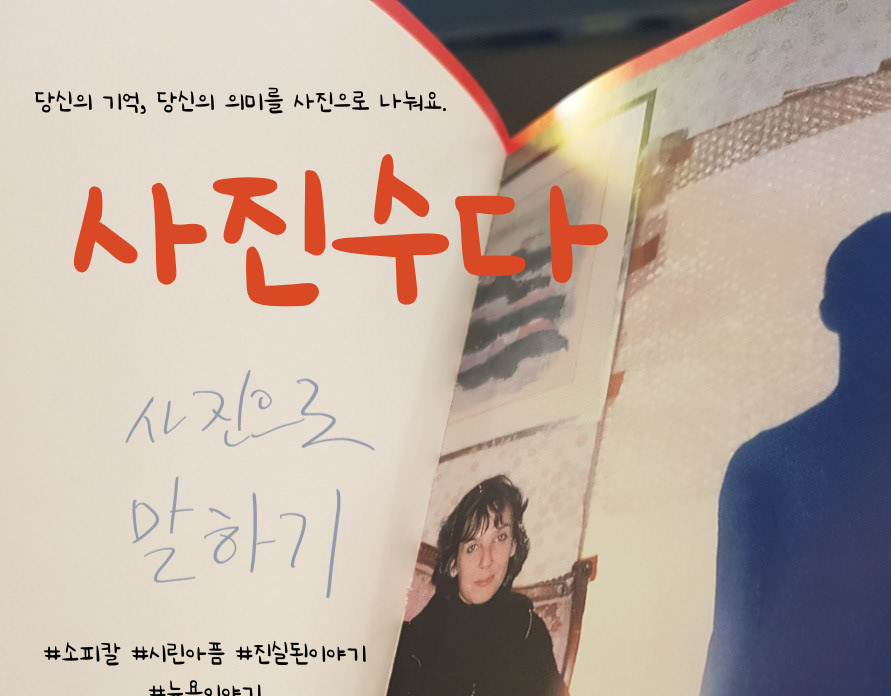 당신의 기억, 당신의 의미를 사진으로 나눠요.
사진수다
사진으로
말하기
#소피칼 #시린아픔 #진실된이야기
#뉴욕이야기